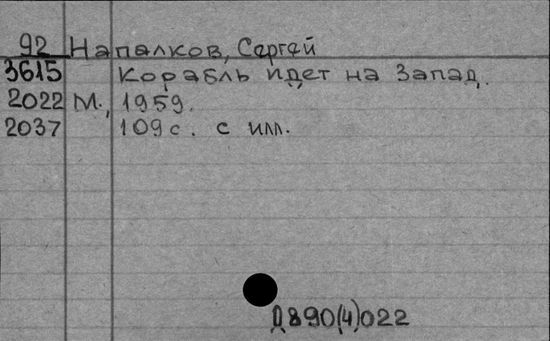 92 Напалков, Сергей
3615 Корабль идет на Запад.
2022 М., 1959.
2037 109 с. с илл.
Д890(4)022